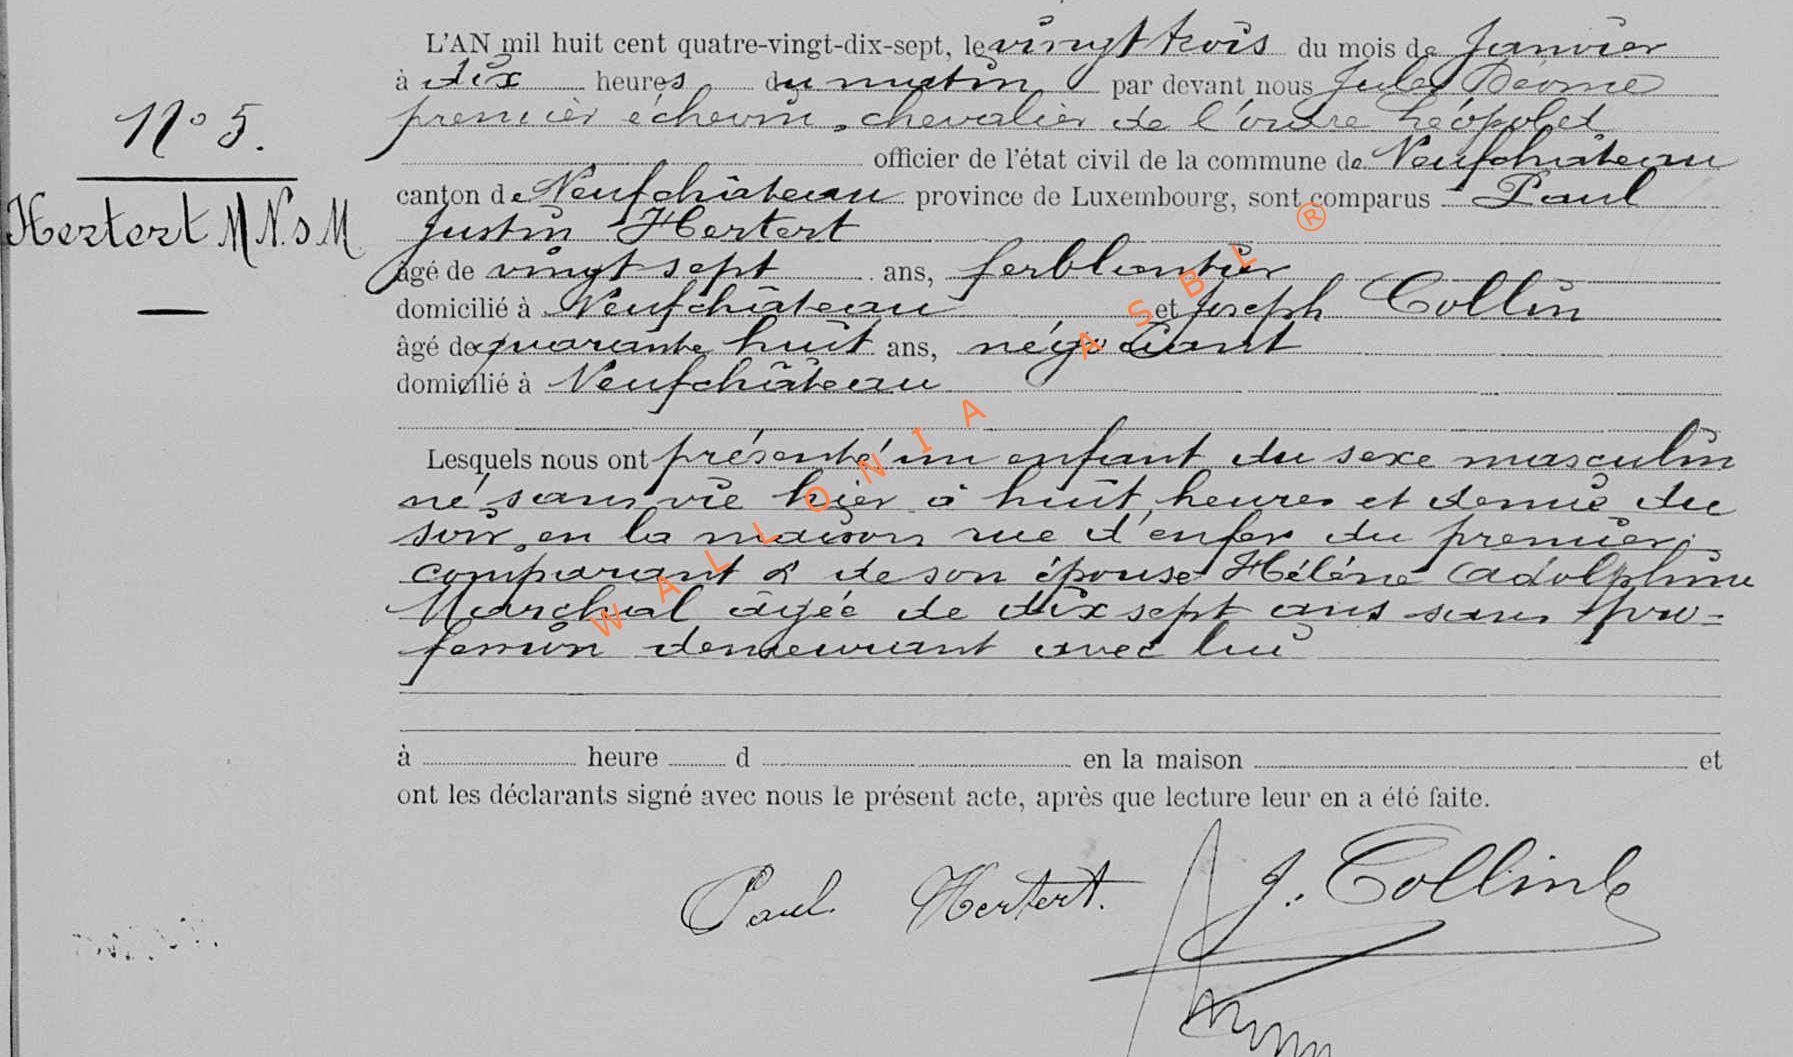 L'AN mil huit cent quatre-vingt-dix-sept, le vingt trois du mois de Janvier
à dix heures du matin par devant nous Jules
premier échevin, chevalier de l'ordre Léopold
officier de l'état civil de la commune de Neufchâteau
canton de Neufchâteau province de Luxembourg, sont comparus Paul
Justin Hertert
âgé de vingt sept ans, ferblantier
domicilié à Neufchâteau et Joseph Collin
âgé de quarante huit ans, négociant
domicilié à Neufchâteau
Lesquels nous ont présenté un enfant du sexe masculin
né sans vie hier à huit heures et demie du
soir, en la maison rue d'enfer du premier
comparant & de son épouse Hélène Adolphine
Marchal âgée de dix sept ans sans pro-
fession demeurant avec lui
à heure d en la maison et
ont les déclarants signé avec nous le présent acte, après que lecture leur en a été faite.
Paul Hertert. J. Collin
N° 5.
Hertert M N. s M
WALLONIA ASBL ®